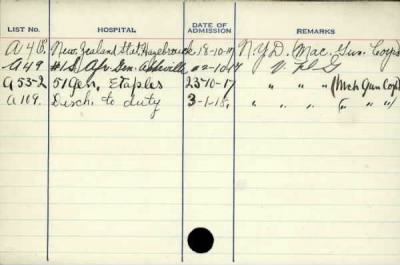 LIST NO. HOSPITAL DATE OF ADMISSION REMARKS
A 46. New Zealand Stat. Hazebrouck 18-10-17 N.Y.D. Mac. Gun. Corps
A 49 #1 S. Afr. Gen. Abbeville 22-10-17 V. D. G
A 53-2 51 Gen, Etaples 23-10-17 " " " (Mch Gun Cop)
A 109. Disch. to duty 3-1-18, " " " ( " " " )